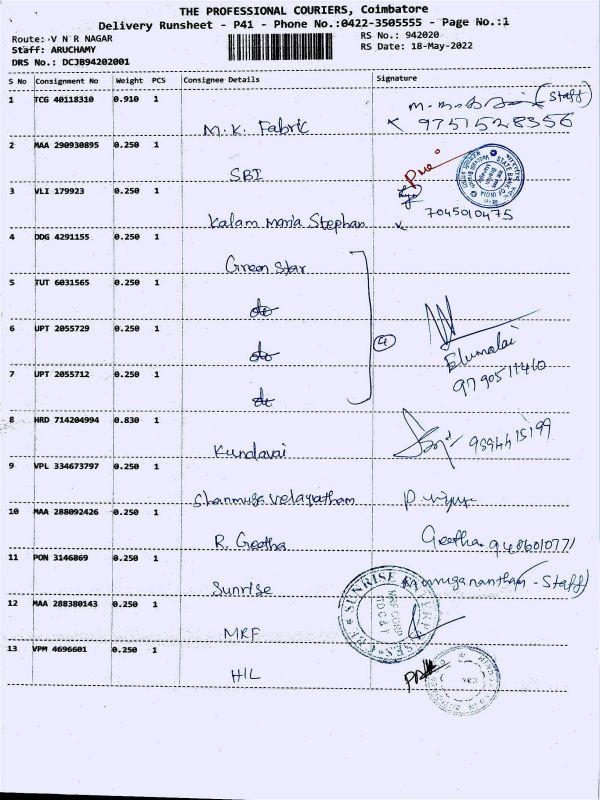 THE PROFESSIONAL COURIERS, Coimbatore
Delivery Runsheet - P41 - Phone No.:0422-3505555 - Page No.:1
Route: V N R NAGAR
RS No.: 942020
Staff: ARUCHAMY
RS Date: 18-May-2022
DRS No.: DCJB94202001
S No Consignment No Weight PCS Consignee Details Signature
1 TCG 40118310 0.910 1
M.K. Fabric (Staff)
9751528356
2 MAA 290930895 0.250 1
SBI
STATE BANK OF INDIA
3 VLI 179923 0.250 1
Kalam Maria Stephan 7045010475
4 DDG 4291155 0.250 1
Green Star
5 TUT 6031565 0.250 1
do
6 UPT 2055729 0.250 1
do
4
Elumalai
7 UPT 2055712 0.250 1
do
8 HRD 714204994 0.830 1
Kundavai
9 VPL 334673797 0.250 1
Shanmuga Velayatham
10 MAA 288092426 0.250 1
R. Geetha Geetha 9486010771
11 PON 3146869 0.250 1
Sunrise - Staff)
SUNRISE
12 MAA 288380143 0.250 1
MRF
13 VPM 4696601 0.250 1
HIL